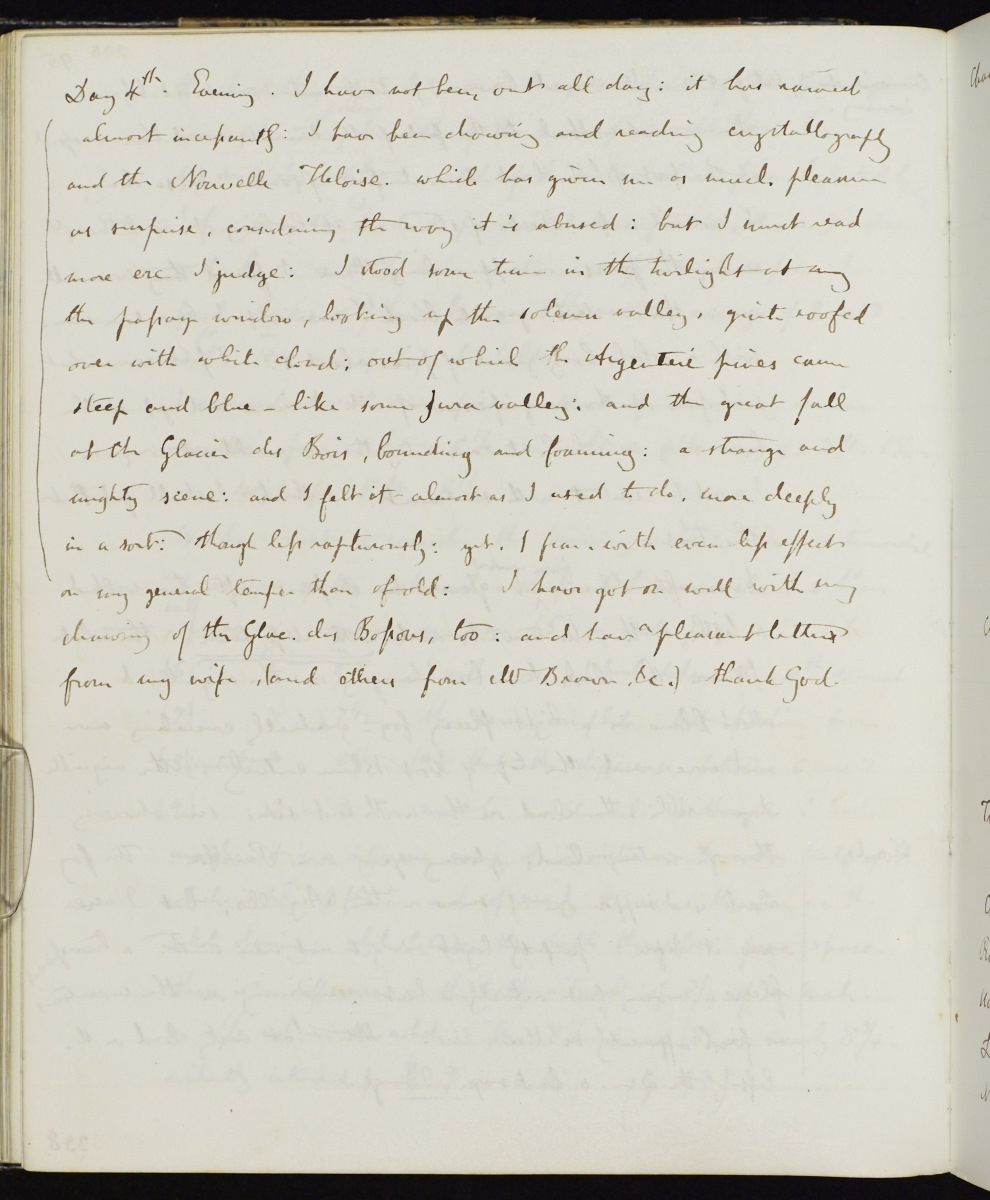 Day 4th. Evening. I have not been out all day: it has rained
almost incessantly: I have been drawing and reading crystallography
and the Nouvelle Heloise. which has given me as much pleasure
as surprise, considering the way it is abused: but I must read
more ere I judge: I stood some time in the twilight at my
the passage window, looking up the solemn valley, quite roofed
over with white cloud; out of which the Argentiere pines came
steep and blue - like some Jura valley: and the great fall
of the Glacier des Bois, bounding and foaming: a strange and
mighty scene: and I felt it - almost as I used to do, more deeply
in a sort: though less rapturously: yet, I fear with even less effect
on my general temper than of old: I have got on well with my
drawing of the Glac. des Bossons, too: and have a pleasant letter
from my wife, (and others from W Brown, &c.) thank God.